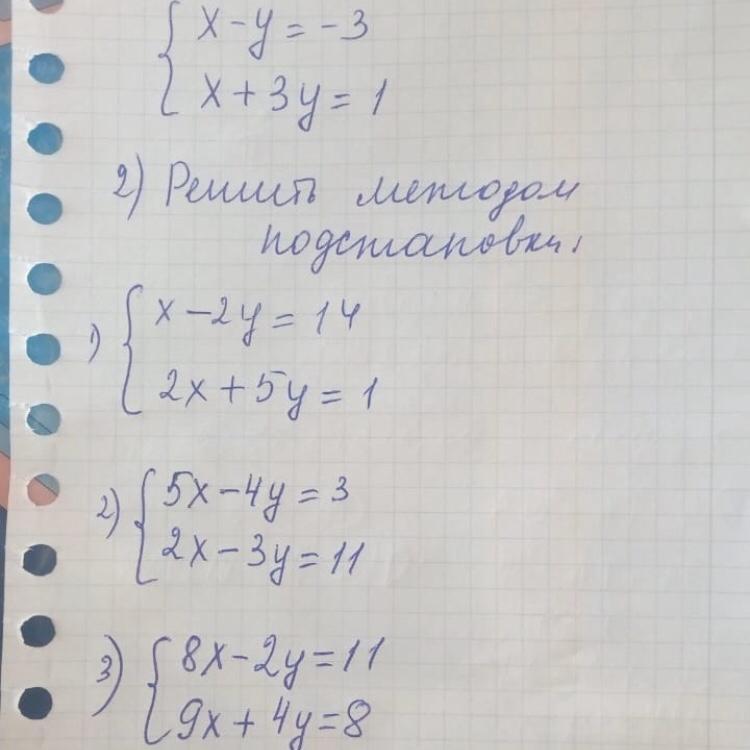 x - y = -3
x + 3y = 1
2) Решить методом
подстановки:
1) x - 2y = 14
2x + 5y = 1
2) 5x - 4y = 3
2x - 3y = 11
3) 8x - 2y = 11
9x + 4y = 8